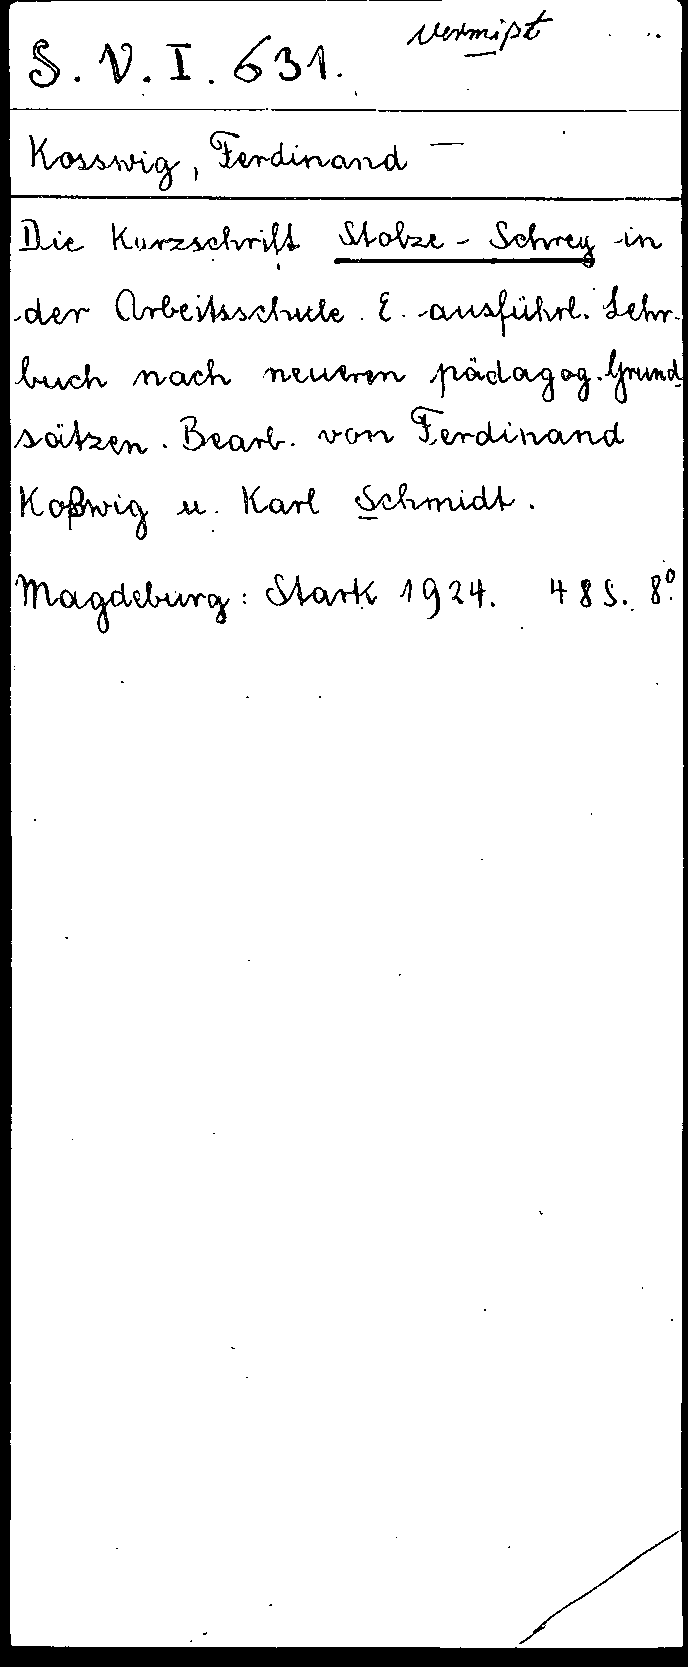 vermißt
S. V. I. 631.
Kosswig, Ferdinand —
Die Kurzschrift Stolze - Schrey in
der Arbeitsschule. E. ausführl. Lehr-
buch nach neueren pädagog. Grund-
sätzen. Bearb. von Ferdinand
Koßwig u. Karl Schmidt.
Magdeburg: Stark 1924. 48 S. 8°.